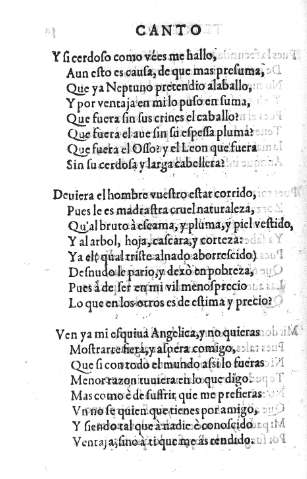 CANTO
Y si cerdoso como vées me hallo,
Aun esto es causa, de que mas presuma,
Que ya Neptuno pretendio alaballo,
Y por ventaja en mi lo puso en suma,
Que fuera sin sus crines el caballo?
Que fuera el aue sin su espessa pluma?
Que fuera el Osso? y el Leon que fuera
Sin su cerdosa y larga cabellera?
Deuiera el hombre vuestro estar corrido,
Pues le es madrastra cruel naturaleza,
Qu'al bruto à escama, y pluma, y piel vestido,
Y al arbol, hoja, cascara, y corteza:
Ya el (qual triste alnado aborrescido)
Desnudo le pario, y dexò en pobreza,
Pues à de ser en mi vil menosprecio
Lo que en los otros es de estima y precio?
Ven ya mi esquiua Angelica, y no quieras
Mostrarte fiera, y aspera comigo,
Que si con todo el mundo assi lo fueras
Menor razon tuuiera en lo que digo.
Mas como è de suffrir que me prefieras
Vn no se quien que tienes por amigo,
Y siendo tal que à nadie è conoscido
Ventaja, sino à ti que me as rendido.